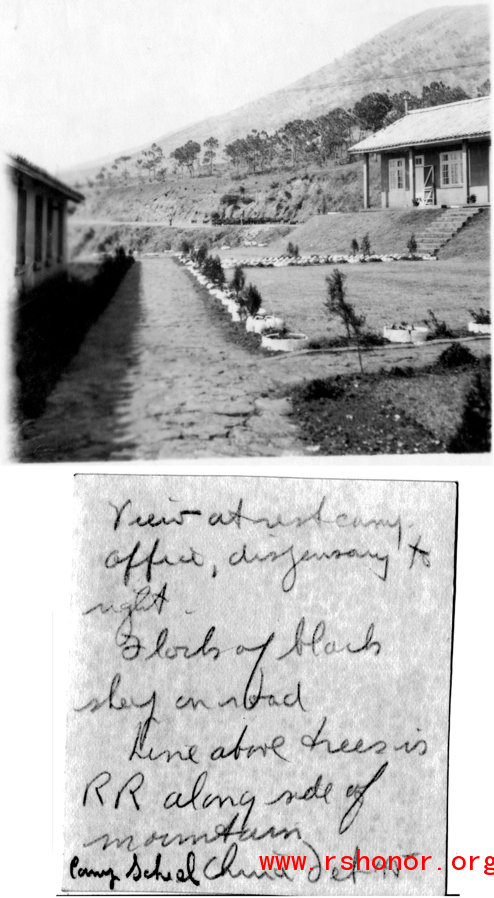 View at rest camp.
office, dispensary to
right.
Flock of black
sheep on road
Line above trees is
RR along side of
mountain
Camp Schiel China
www.rshonor.org